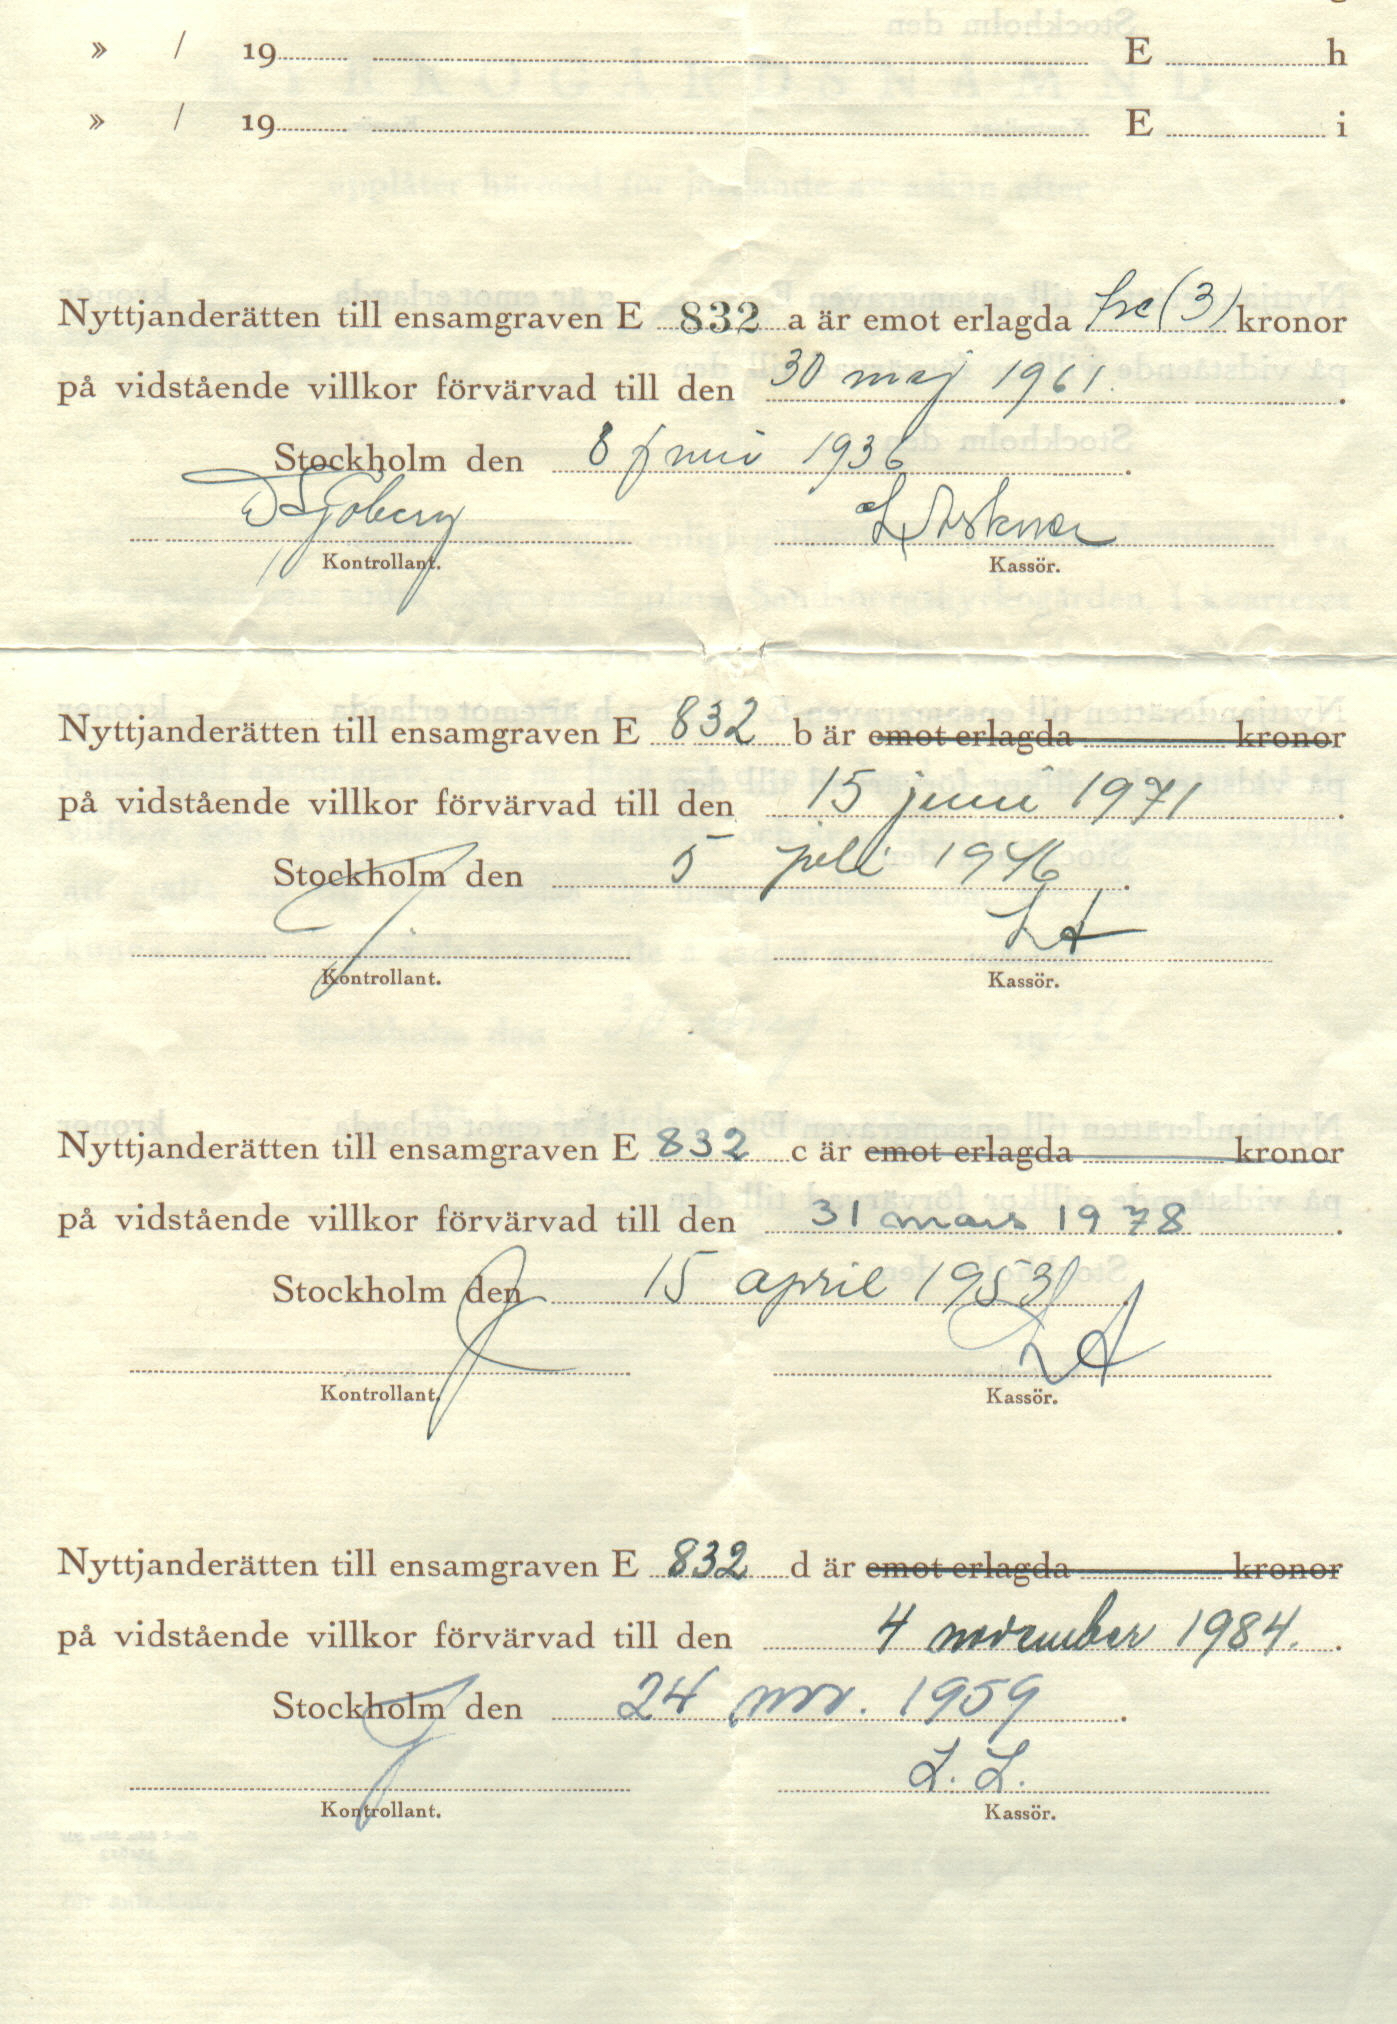 » / 19 E h
» / 19 E i
Nyttjanderätten till ensamgraven E 832 a är emot erlagda tre (3) kronor
på vidstående villkor förvärvad till den 30 maj 1961.
Stockholm den 8 juni 1936.
Kontrollant. Kassör.
Nyttjanderätten till ensamgraven E 832 b är emot erlagda kronor
på vidstående villkor förvärvad till den 15 juni 1971.
Stockholm den 5 juli 1946.
LA
Kontrollant. Kassör.
Nyttjanderätten till ensamgraven E 832 c är emot erlagda kronor
på vidstående villkor förvärvad till den 31 mars 1978.
Stockholm den 15 april 1953.
LA
Kontrollant. Kassör.
Nyttjanderätten till ensamgraven E 832 d är emot erlagda kronor
på vidstående villkor förvärvad till den 4 november 1984.
Stockholm den 24 nov. 1959.
L. L.
Kontrollant. Kassör.